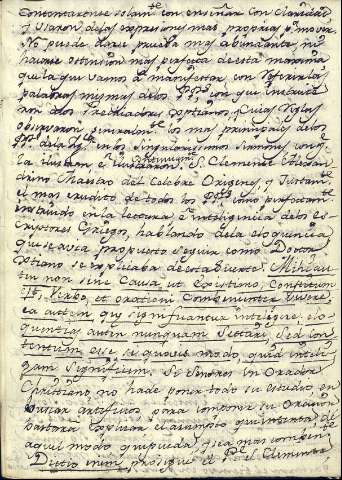 contentarense solam.te con enseñar con claridad
y usaron delas expresiones mas propias p.a mover.
No puede darse prueba mas abundante, ni
hacerse ostension mas perfecta de esta maxima
que la que vamos à manifestar con referir las
palabras mismas delos P.P.s con que
alos Predicadores xptianos, cuias reglas
observaron los mas principales delos
P.P.s dela Ig.a en los singularissimos sermones con q.
la ilustran è ilustraron. S. Clemente Alexan
drino Maestro del celebre Origenes, y justam.te
el mas erudito de todos los P.P.s como perfectam.te
en la lectura è inteligencia delos es
critores Griegos, hablando dela eloquencia
que se avia propuesto seguir como Doctor
xptiano se explicaba de esta suerte: Mihi au
tem non sine causa, ut existimo,
est, et orationi convenienter vivere,
ea autem que significantur intelligere, elo
quentiam autem nunquam sectari, sed con
tentum esse si quovis modo, quod intelli
gam significem. Se señores un Orador
Christiano no hade poner todo su estudio en
buscar artificios para componer su Oracion
bastará explicar el asumpto que intenta de
aquel modo que pueda, y sea mas compet.te
Dictio enim, prosigue el P.e S. Clemente